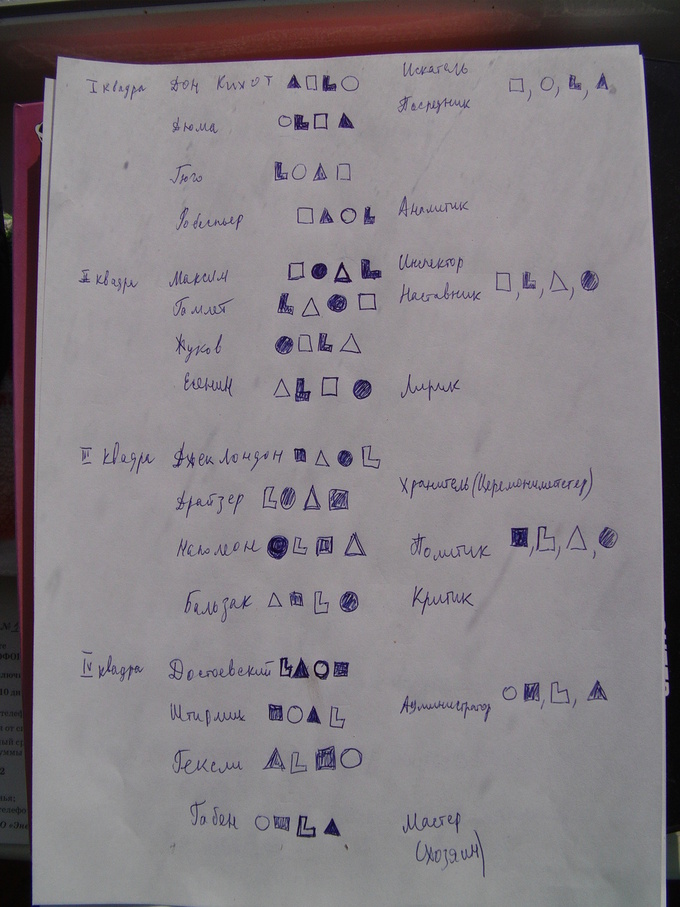 I квадра Дон Кихот ▲ □ L ○ Искатель □, ○, L, ▲
Посредник
Дюма ○ L □ ▲
Гюго L ○ ▲ □
Робеспьер □ ▲ ○ L Аналитик
II квадра Максим □ ● △ L Инспектор
Гамлет L △ ● □ Наставник □, L, △, ●
Жуков ● □ L △
Есенин △ L □ ● Лирик
III квадра Джек Лондон ■ △ ● L
Хранитель (Церемониймейстер)
Драйзер L ● △ ■
Наполеон ● L ■ △ Политик ■, L, △, ●
Бальзак △ ■ L ● Критик
IV квадра Достоевский L ▲ ○ ■
Штирлиц ■ ○ ▲ L Администратор ○ ■, L, ▲
Гексли ▲ L ■ ○
Габен ○ ■ L ▲ Мастер
(Хозяин)